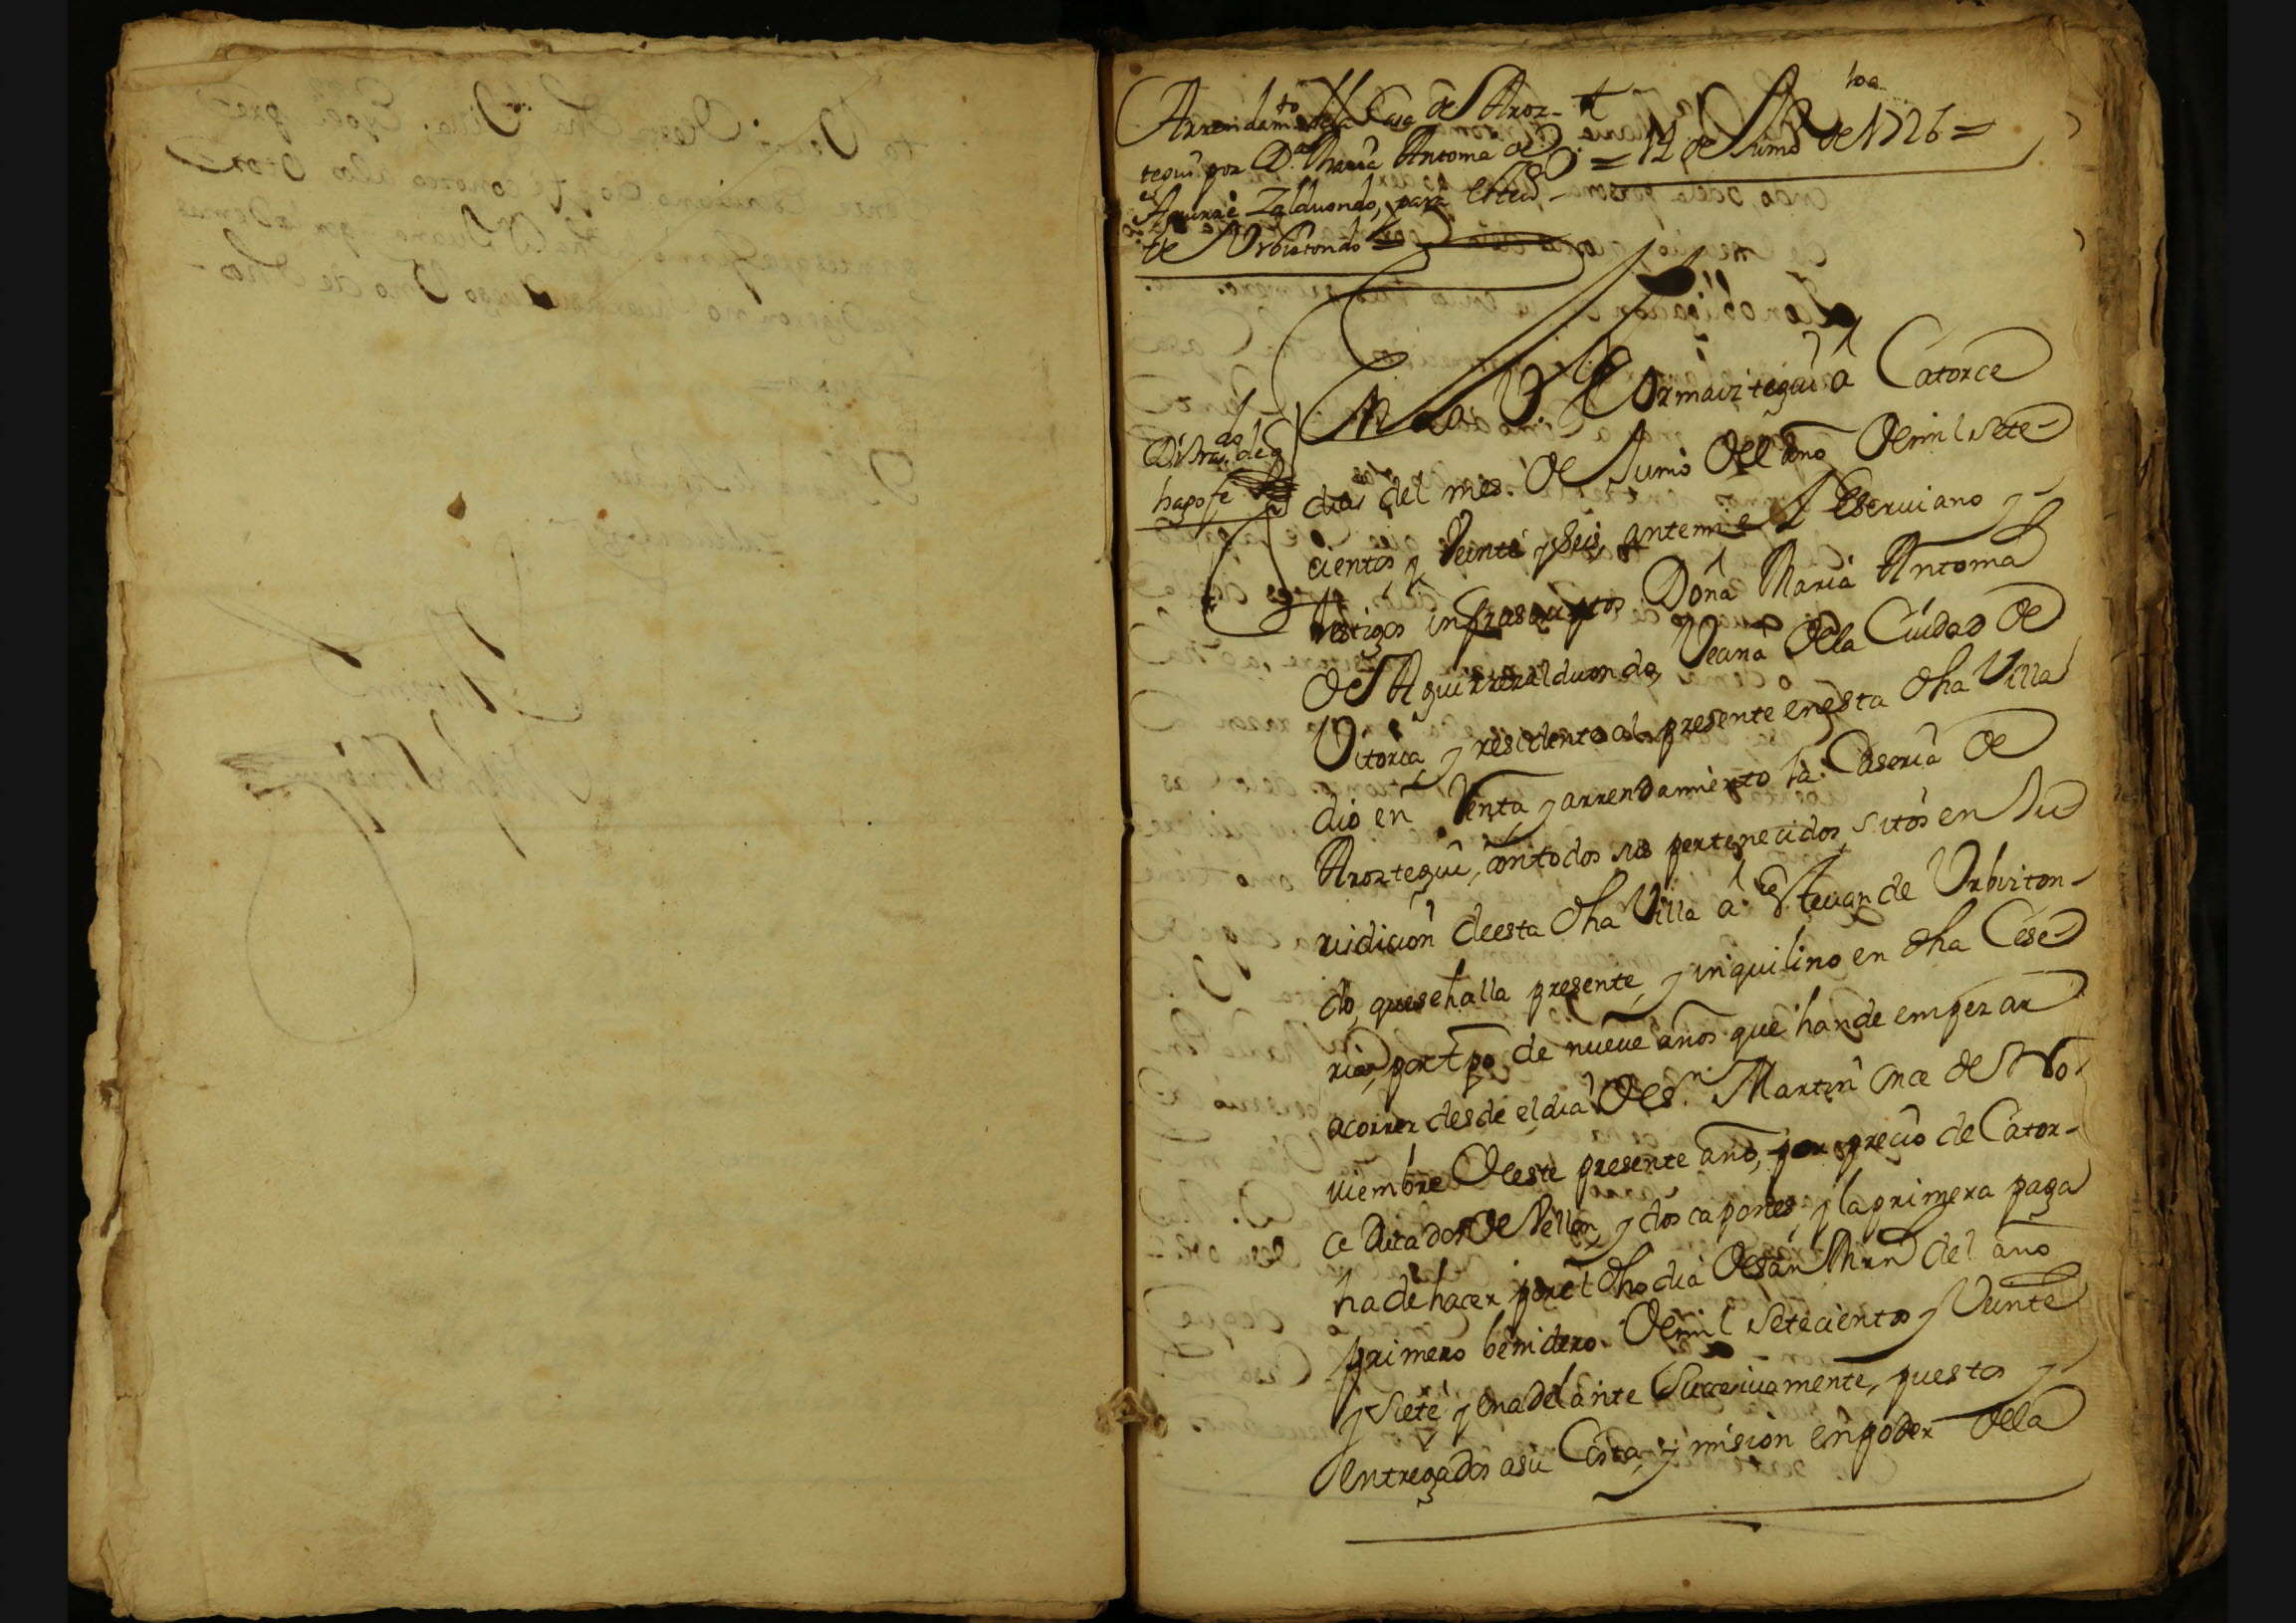 Arrendamto. dela Casa de Aroz-
tegui por Da. Maria Antonia de
Aguirre Zalduondo, para Esteuan
de Urbiztondo =
= 14 de Junio de 1726 =
En la V.ª de Ormaiztegui â Catorce
dias del mes de Junio del año de mil sete
cientos y Veinte y seis, ante mi el Escriuano y
testigos infrascriptos Doña Maria Antonia
de Aguirrezalduondo, Vecina dela Ciudad de
Vitoria y residente al presente en esta dha Villa
dio en Renta y arrendamiento la Caseria de
Aroztegui, con todos sus pertenecidos, sitos en Ju
risdicion de esta dha Villa â Esteuan de Urbizton-
do, que se halla presente, y inquilino en dha Case
ria, por tpo de nueue años que han de empezar
a correr desde el dia de Sn. Martin once de No-
uiembre de este presente año, por precio de Cator-
ce Ducados de Vellon, y dos capones, y la primera paga
ha de hacer por el dho dia de san Mrn del año
primero benidero de mil setecientos y Veinte
y siete y en adelante Succesiuamente, puestos y
entregados a su Costa, y mision en poder dela
hago fe